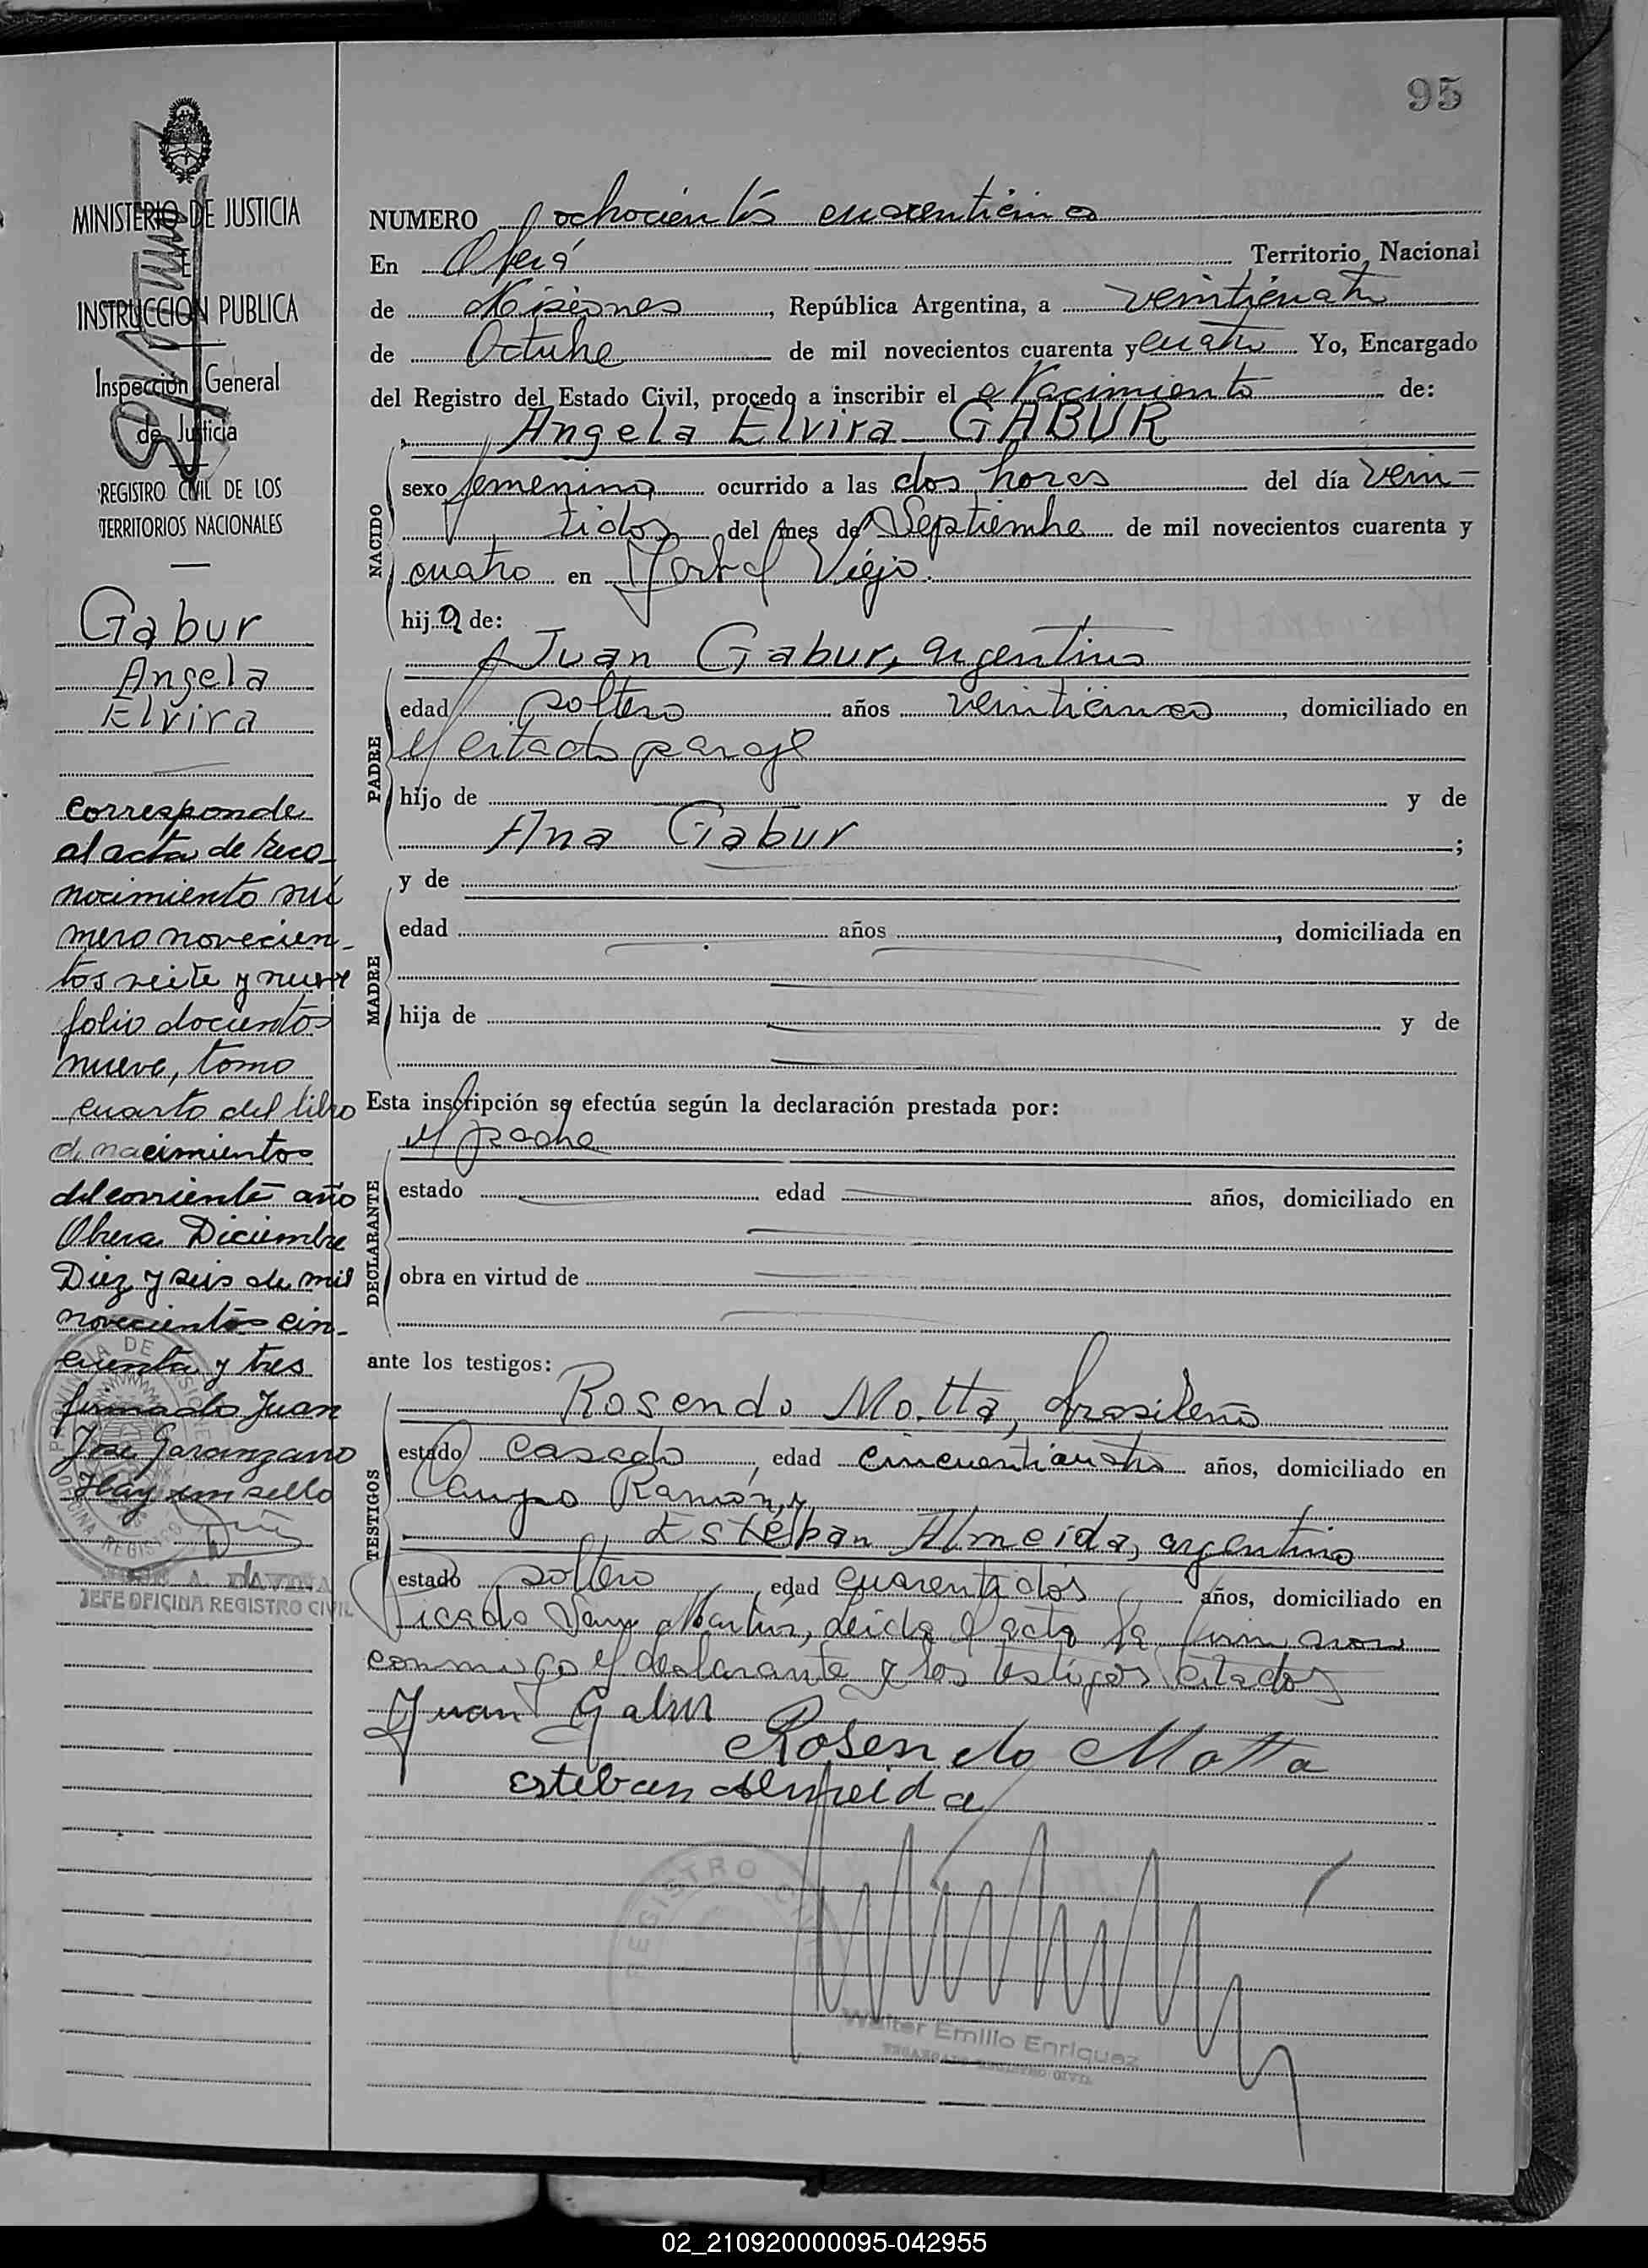 95
MINISTERIO DE JUSTICIA
E
INSTRUCCION PUBLICA
Inspección General
de Justicia
REGISTRO CIVIL DE LOS
TERRITORIOS NACIONALES
Gabur
Angela
Elvira
corresponde
al acta de reco-
nocimiento nú
mero novecien-
tos siete y nueve
folio docientos
nueve, tomo
cuarto del libro
de nacimientos
del corriente año
Obera Diciembre
Diez y seis de mil
novecientos cin-
cuenta y tres
firmado Juan
Jose Garanzano
Hay un sello
PROVINCIA DE MISIONES
OFICINA REGISTRO
A. DAVIÑA
JEFE OFICINA REGISTRO CIVIL
NUMERO ochocientos cuarenticinco
En Oberá Territorio Nacional
de Misiones, República Argentina, a veinticuatro
de Octubre de mil novecientos cuarenta y cuatro Yo, Encargado
del Registro del Estado Civil, procedo a inscribir el Nacimiento de:
Angela Elvira GABUR
NACIDO
sexo femenino ocurrido a las dos horas del día vein-
tidos del mes de Septiembre de mil novecientos cuarenta y
cuatro en Yerbal Viejo.
hija de:
Juan Gabur, argentino
PADRE
edad soltero años veinticinco, domiciliado en
el citado paraje
hijo de y de
Ana Gabur ;
y de
MADRE
edad años, domiciliada en
hija de y de
Esta inscripción se efectúa según la declaración prestada por:
el padre
DECLARANTE
estado edad años, domiciliado en
obra en virtud de
ante los testigos:
TESTIGOS
Rosendo Motta, brasileño
estado casado, edad cincuenticuatro años, domiciliado en
Campo Ramón, y
Estéban Almeida, argentino
estado soltero, edad cuarentidos años, domiciliado en
Picada San Martin, leida el acta la firmaron
conmigo el declarante y los testigos citados
Juan Gabur
Rosendo Motta
Esteban Almeida
REGISTRO CIVIL
Walter Emilio Enriquez
ENCARGADO REGISTRO CIVIL
02_210920000095-042955